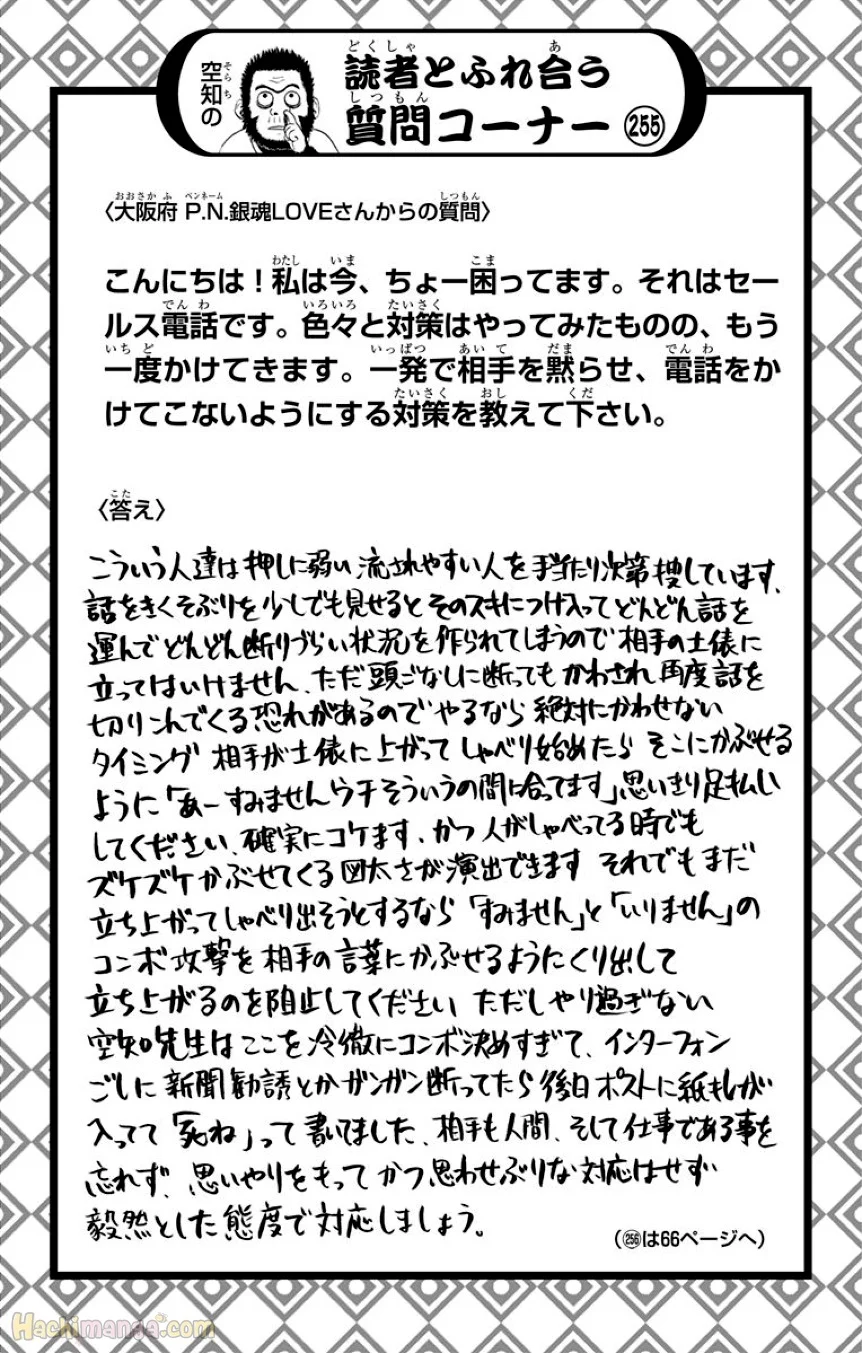 空知の
読者とふれ合う
質問コーナー 255
〈大阪府 P.N.銀魂LOVEさんからの質問〉
こんにちは！私は今、ちょー困ってます。それはセー
ルス電話です。色々と対策はやってみたものの、もう
一度かけてきます。一発で相手を黙らせ、電話をか
けてこないようにする対策を教えて下さい。
〈答え〉
こういう人達は押しに弱い流されやすい人を手当たり次第捜しています、
話をきくそぶりを少しでも見せるとそのスキにつけ入ってどんどん話を
運んでどんどん断りづらい状況を作られてしまうので相手の土俵に
立ってはいけません、ただ頭ごなしに断ってもかわされ再度話を
切りこんでくる恐れがあるのでやるなら絶対にかわせない
タイミング 相手が土俵に上がってしゃべり始めたら そこにかぶせる
ように「あーすみませんウチそういうの間に合ってます」思いきり足払い
してください、確実にコケます、かつ人がしゃべってる時でも
ズケズケかぶせてくる図太さが演出できます それでもまだ
立ち上がってしゃべり出そうとするなら「すみません」と「いりません」の
コンボ攻撃を相手の言葉にかぶせるようにくり出して
立ち上がるのを阻止してください ただしやり過ぎない
空知先生はここを冷徹にコンボ決めすぎて、インターフォン
ごしに新聞勧誘とかガンガン断ってたら後日ポストに紙キレが
入ってて「死ね」って書いてました、相手も人間、そして仕事である事を
忘れず、思いやりをもってかつ思わせぶりな対応はせず
毅然とした態度で対応しましょう。
（256は66ページへ）
Hachimanga.com